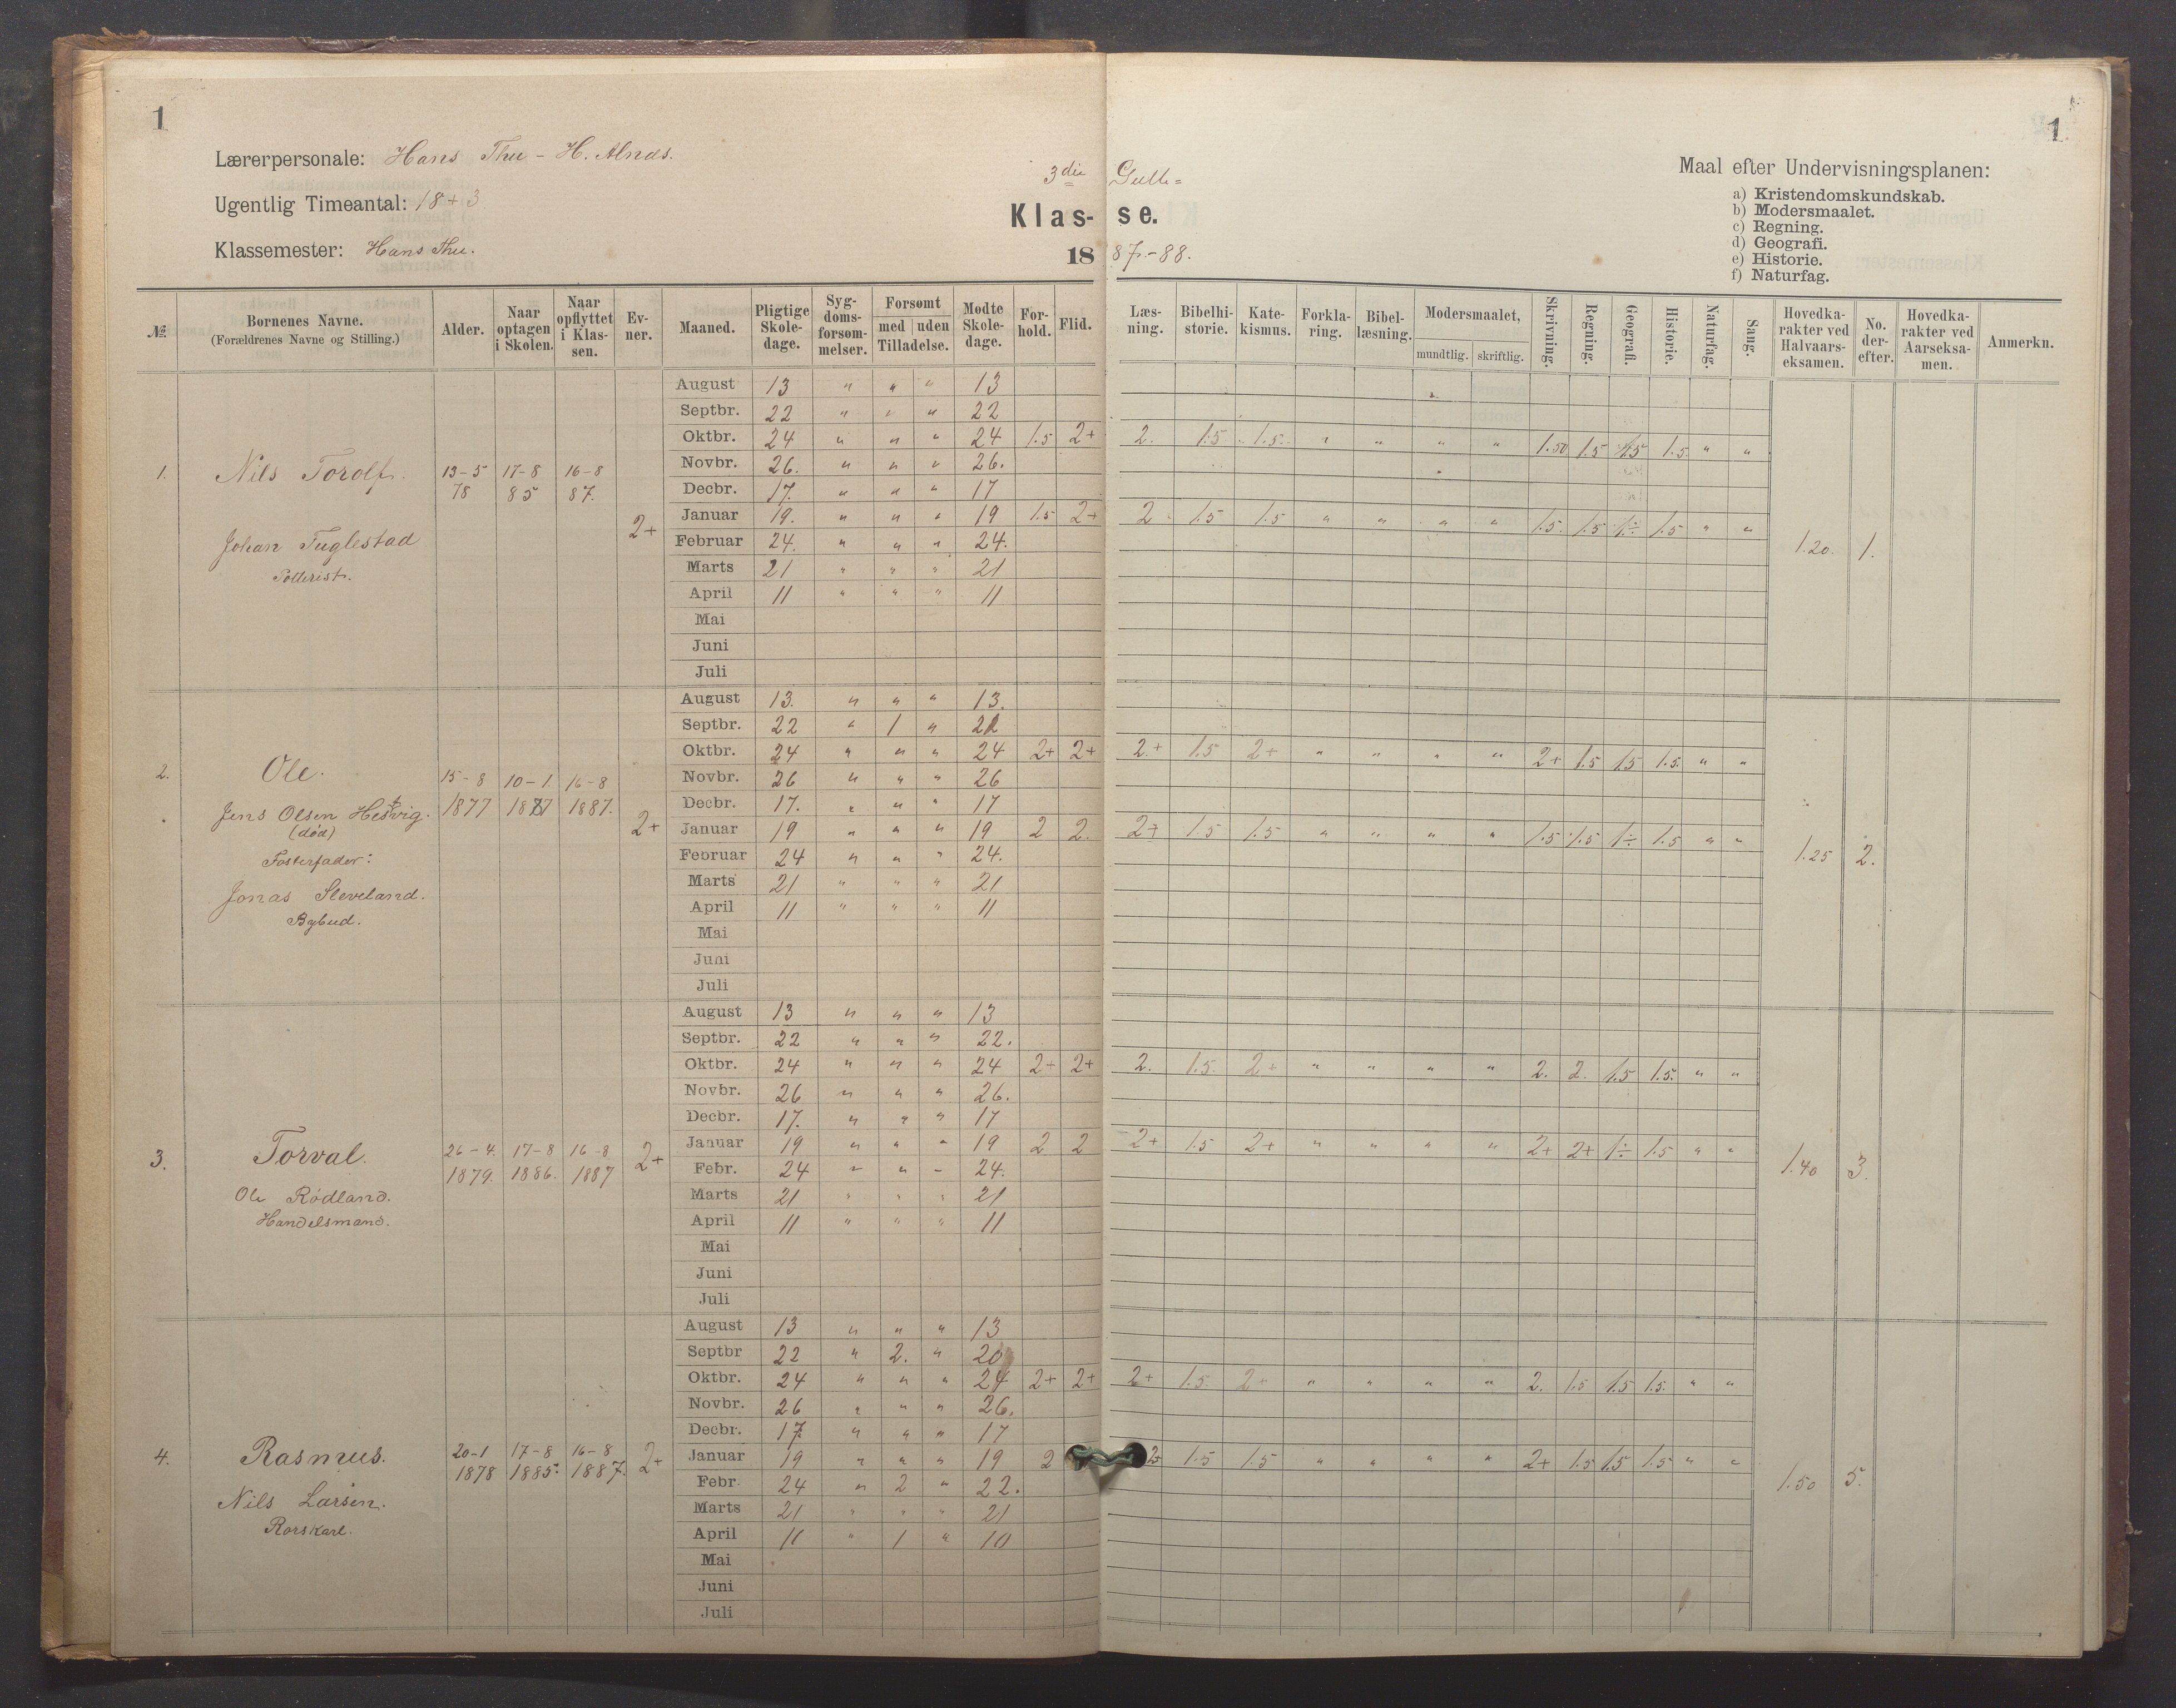 1
1
Lærerpersonale: Hans Thu - H. Alnæs.
Ugentlig Timeantal: 18 + 3
Klassemester: Hans Thu.
3die Gutte=
Klas-se.
1887.-88.
Maal efter Undervisningsplanen:
a) Kristendomskundskab.
b) Modersmaalet.
c) Regning.
d) Geografi.
e) Historie.
f) Naturfag.
№ Børnenes Navne. (Forældrenes Navne og Stilling.) Alder. Naar optagen i Skolen. Naar opflyttet i Klassen. Evner. Maaned. Pligtige Skoledage. Sygdomsforsømmelser. Forsømt med uden Tilladelse. Mødte Skoledage. Forhold. Flid. Læsning. Bibelhistorie. Katekismus. Forklaring. Bibellæsning. Modersmaalet, mundtlig. skriftlig. Skrivning. Regning. Geografi. Historie. Naturfag. Sang. Hovedkarakter ved Halvaarseksamen. No. derefter. Hovedkarakter ved Aarseksamen. Anmerkn.
1. Nils Torolf. 13-5 78 17-8 85 16-8 87. 2+
Johan Fuglestad
1.20. 1.
August 13 " " " 13
Septbr. 22 " " " 22
Oktbr. 24 " " " 24 1.5 2+ 2. 1.5 1.5 " " " " 1.50 1.5 1.5 1.5 " "
Novbr. 26. " " " 26.
Decbr. 17. " " " 17
Januar 19. " " " 19 1.5 2+ 2 1.5 1.5 " " " " 1.5. 1.5 1÷ 1.5 " "
Februar 24. " " " 24.
Marts 21 " " " 21
April 11 " " " 11
Mai
Juni
Juli
2. Ole. 15-8 1877 10-1. 1887 16-8 1887. 2+
Jens Olsen Hestvig.
(død)
Fosterfader:
Jonas Sleveland.
Bybud.
1.25 2.
August 13. " " " 13.
Septbr. 22 " 1 " 21
Oktbr. 24 " " " 24 2+ 2+ 2.+ 1.5 2+ " " " " 2+ 1.5 1.5 1.5. " "
Novbr. 26 " " " 26
Decbr. 17. " " " 17
Januar 19 " " " 19 2 2. 2+ 1.5 1.5 " " " " 1.5 1.5 1÷ 1.5 " "
Februar 24 " " " 24.
Marts 21 " " " 21
April 11 " " " 11
Mai
Juni
Juli
3. Torval. 26-4. 1879. 17-8 1886. 16-8 1887 2+
Ole Rødland.
Handelsmand.
1.40 3.
August 13 " " " 13
Septbr. 22 " " " 22.
Oktbr. 24 " " " 24 2+ 2+ 2. 1.5. 2+ " " " " 2. 2. 1.5 1.5. " "
Novbr. 26 " " " 26.
Decbr. 17. " " " 17
Januar 19 " " " 19 2 2 2+ 1.5 2+ " " " " 2+ 2+ 1÷ 1.5 " "
Febr. 24 " " " 24.
Marts 21 " " " 21
April 11 " " " 11
Mai
Juni
Juli
4. Rasmus. 20-1 1878 17-8 1885. 16-8 1887. 2+
Nils Larsen.
Rorskarl.
1.50 5.
August 13 " " " 13
Septbr 22 " 2. " 20
Oktbr. 24 " " " 24 2+ 2+ 2+ 1.5. 2+ " " " " 2. 1.5 1.5 1.5. " "
Novbr. 26 " " " 26.
Decbr. 17 " " " 17
Januar 19 " " " 19 2 1.5 1.5 " " " " 2+ 1.5 1.5 1.5 " "
Febr 24 " 2 " 22.
Marts 21 " " " 21
April 11 " 1 " 10
Mai
Juni
Juli